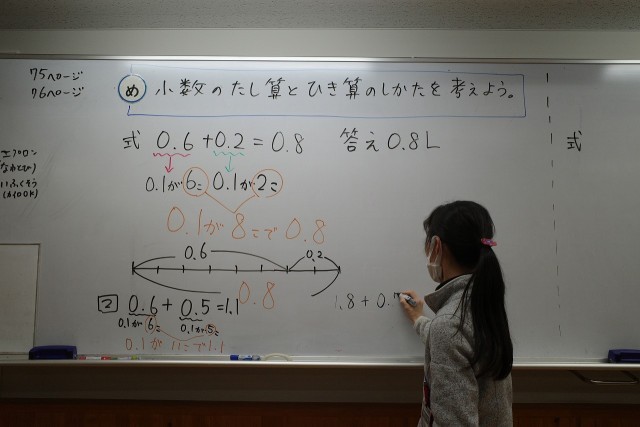 75ページ
76ページ
め 小数のたし算とひき算のしかたを考えよう。
式 0.6+0.2=0.8 答え 0.8L
式
0.1が6こ 0.1が2こ
0.1が8こで0.8
0.6 0.2
0.8
② 0.6+0.5=1.1
0.1が6こ 0.1が5こ
0.1が11こで1.1
1.8+0.7
エプロン